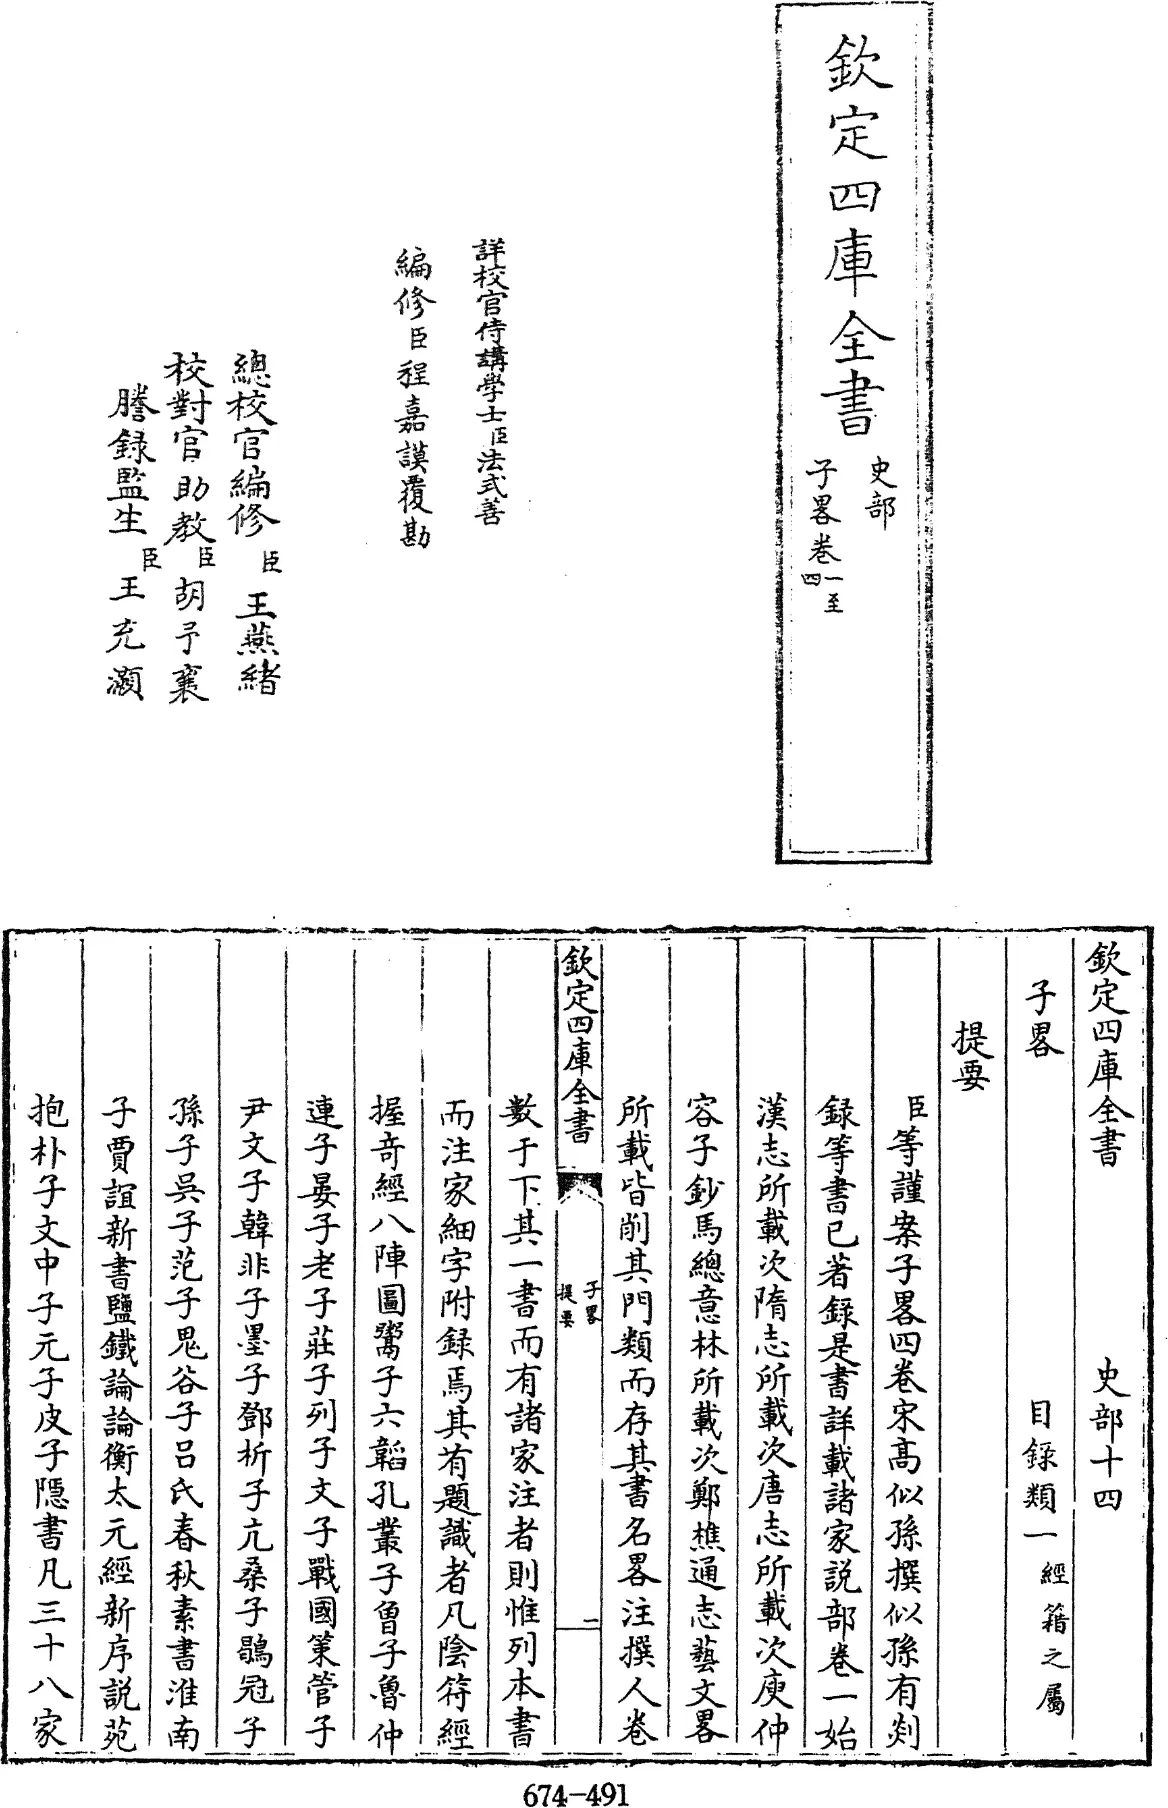 欽定四庫全書
史部
子畧卷一至四
詳校官侍講學士臣法式善
編修臣程嘉謨覆勘
總校官編修臣王燕緒
校對官助教臣胡予襄
謄錄監生臣王充灝
欽定四庫全書 史部十四
子畧 目錄類一經籍之屬
提要
臣等謹案子畧四卷宋高似孫撰似孫有剡
録等書已著錄是書詳載諸家説部卷一始
漢志所載次隋志所載次唐志所載次庾仲
容子鈔馬總意林所載次鄭樵通志藝文畧
所載皆削其門類而存其書名畧注撰人卷
欽定四庫全書 子畧 提要 二
數于下其一書而有諸家注者則惟列本書
而注家細字附録焉其有題識者凡陰符經
握竒經八陣圖鬻子六韜孔叢子曾子魯仲
連子晏子老子莊子列子文子戰國策管子
尹文子韓非子墨子鄧析子亢桑子鶡冠子
孫子吳子范子鬼谷子呂氏春秋素書淮南
子賈誼新書鹽鐵論論衡太元經新序説苑
抱朴子文中子元子皮子隱書凡三十八家
674-491